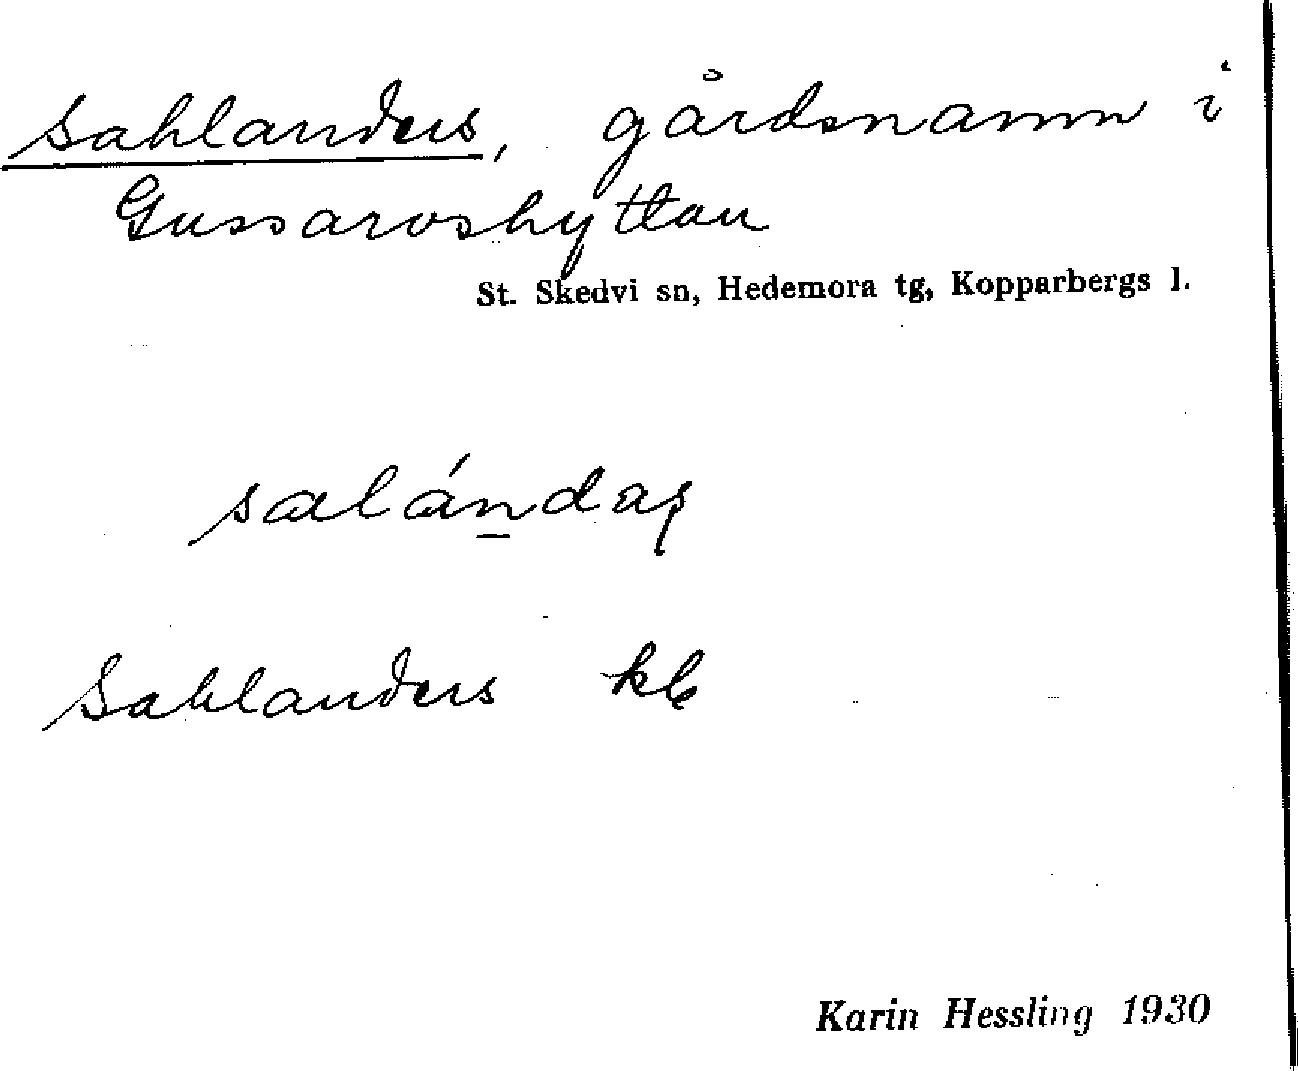 Sahlanders, gårdsnamn i
Gussarvshyttan
St. Skedvi sn, Hedemora tg, Kopparbergs l.
salándaş
Sahlanders kb
Karin Hessling 1930